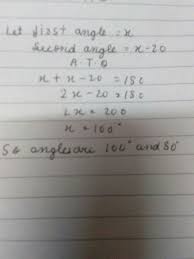 Let first angle = x
Second angle = x-20
A.T.Q
x + x - 20 = 180
2x - 20 = 180
2x = 200
x = 100°
So angles are 100° and 80°